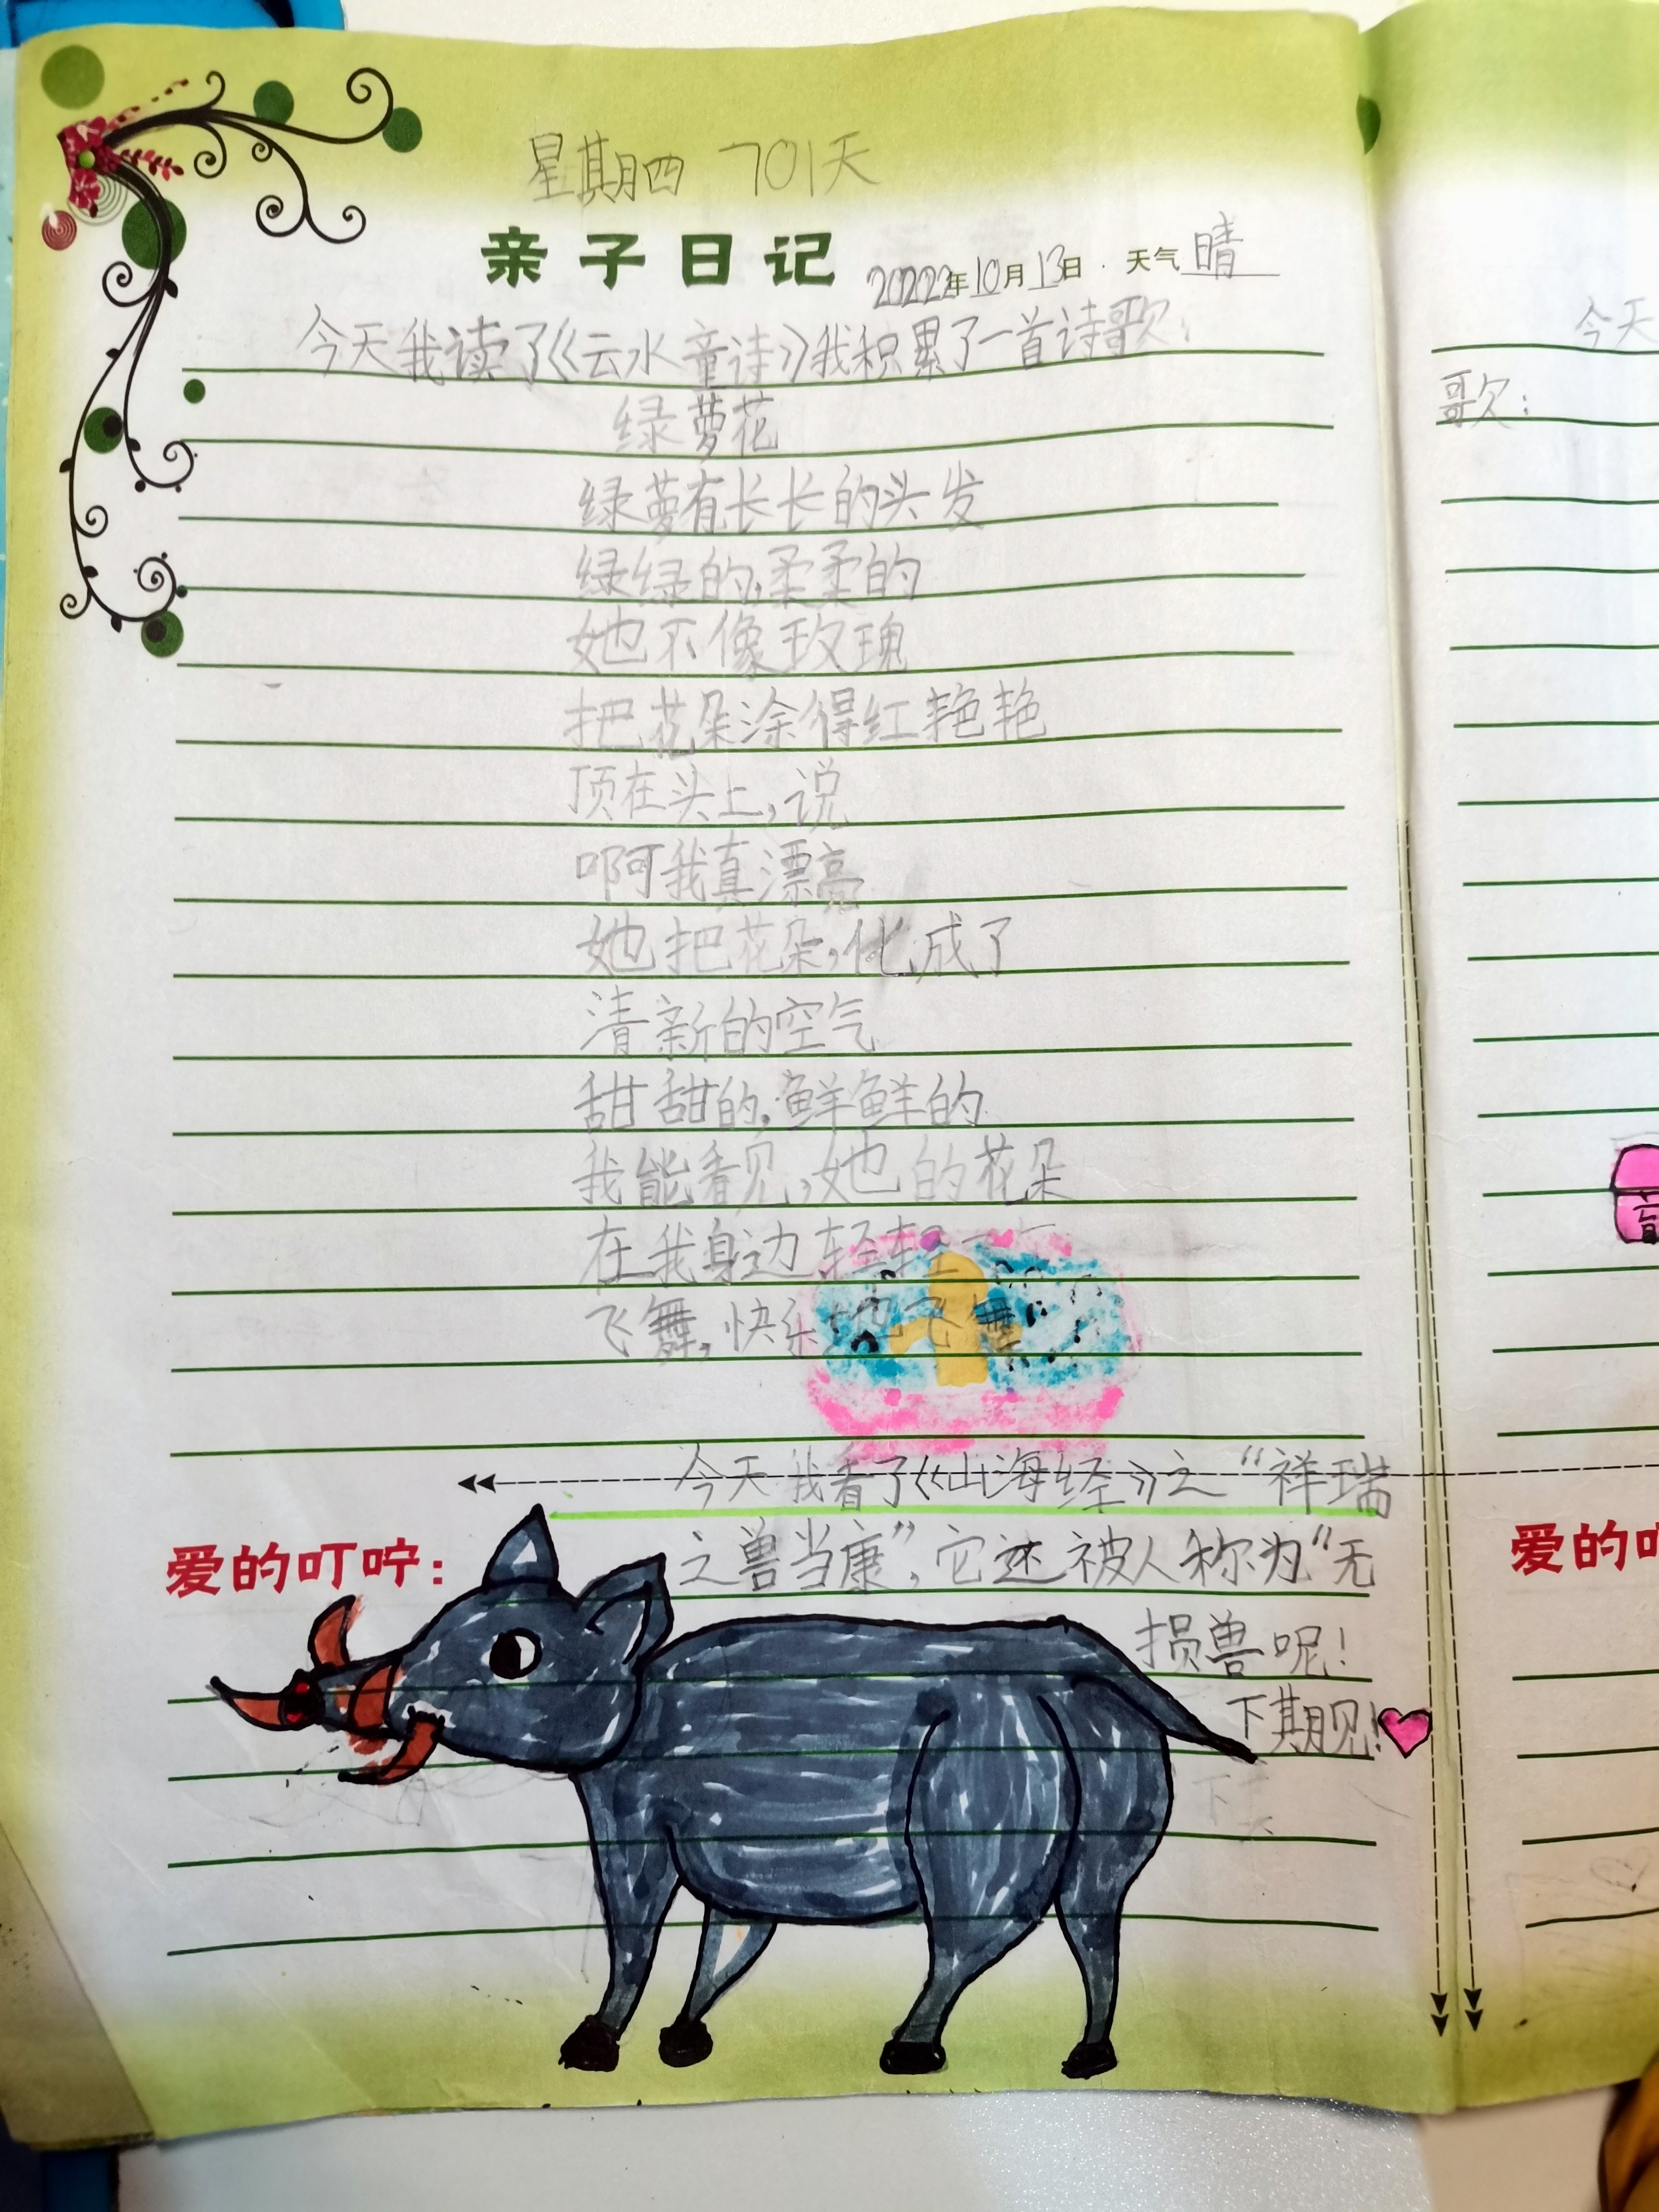 星期四 701天
亲子日记 2022年10月13日 天气晴
今天我读了《云水童诗》我积累了一首诗歌：
绿萝花
绿萝有长长的头发
绿绿的,柔柔的
她不像玫瑰
把花朵涂得红艳艳
顶在头上,说
啊我真漂亮
她把花朵,化成了
清新的空气
甜甜的,鲜鲜的
我能看见,她的花朵
在我身边轻轻
飞舞,快乐地飞舞
今天我看了《山海经》之“祥瑞
爱的叮咛：
之兽当康”,它还被人称为“无
损兽呢！
下期见！
今天
歌：
爱的